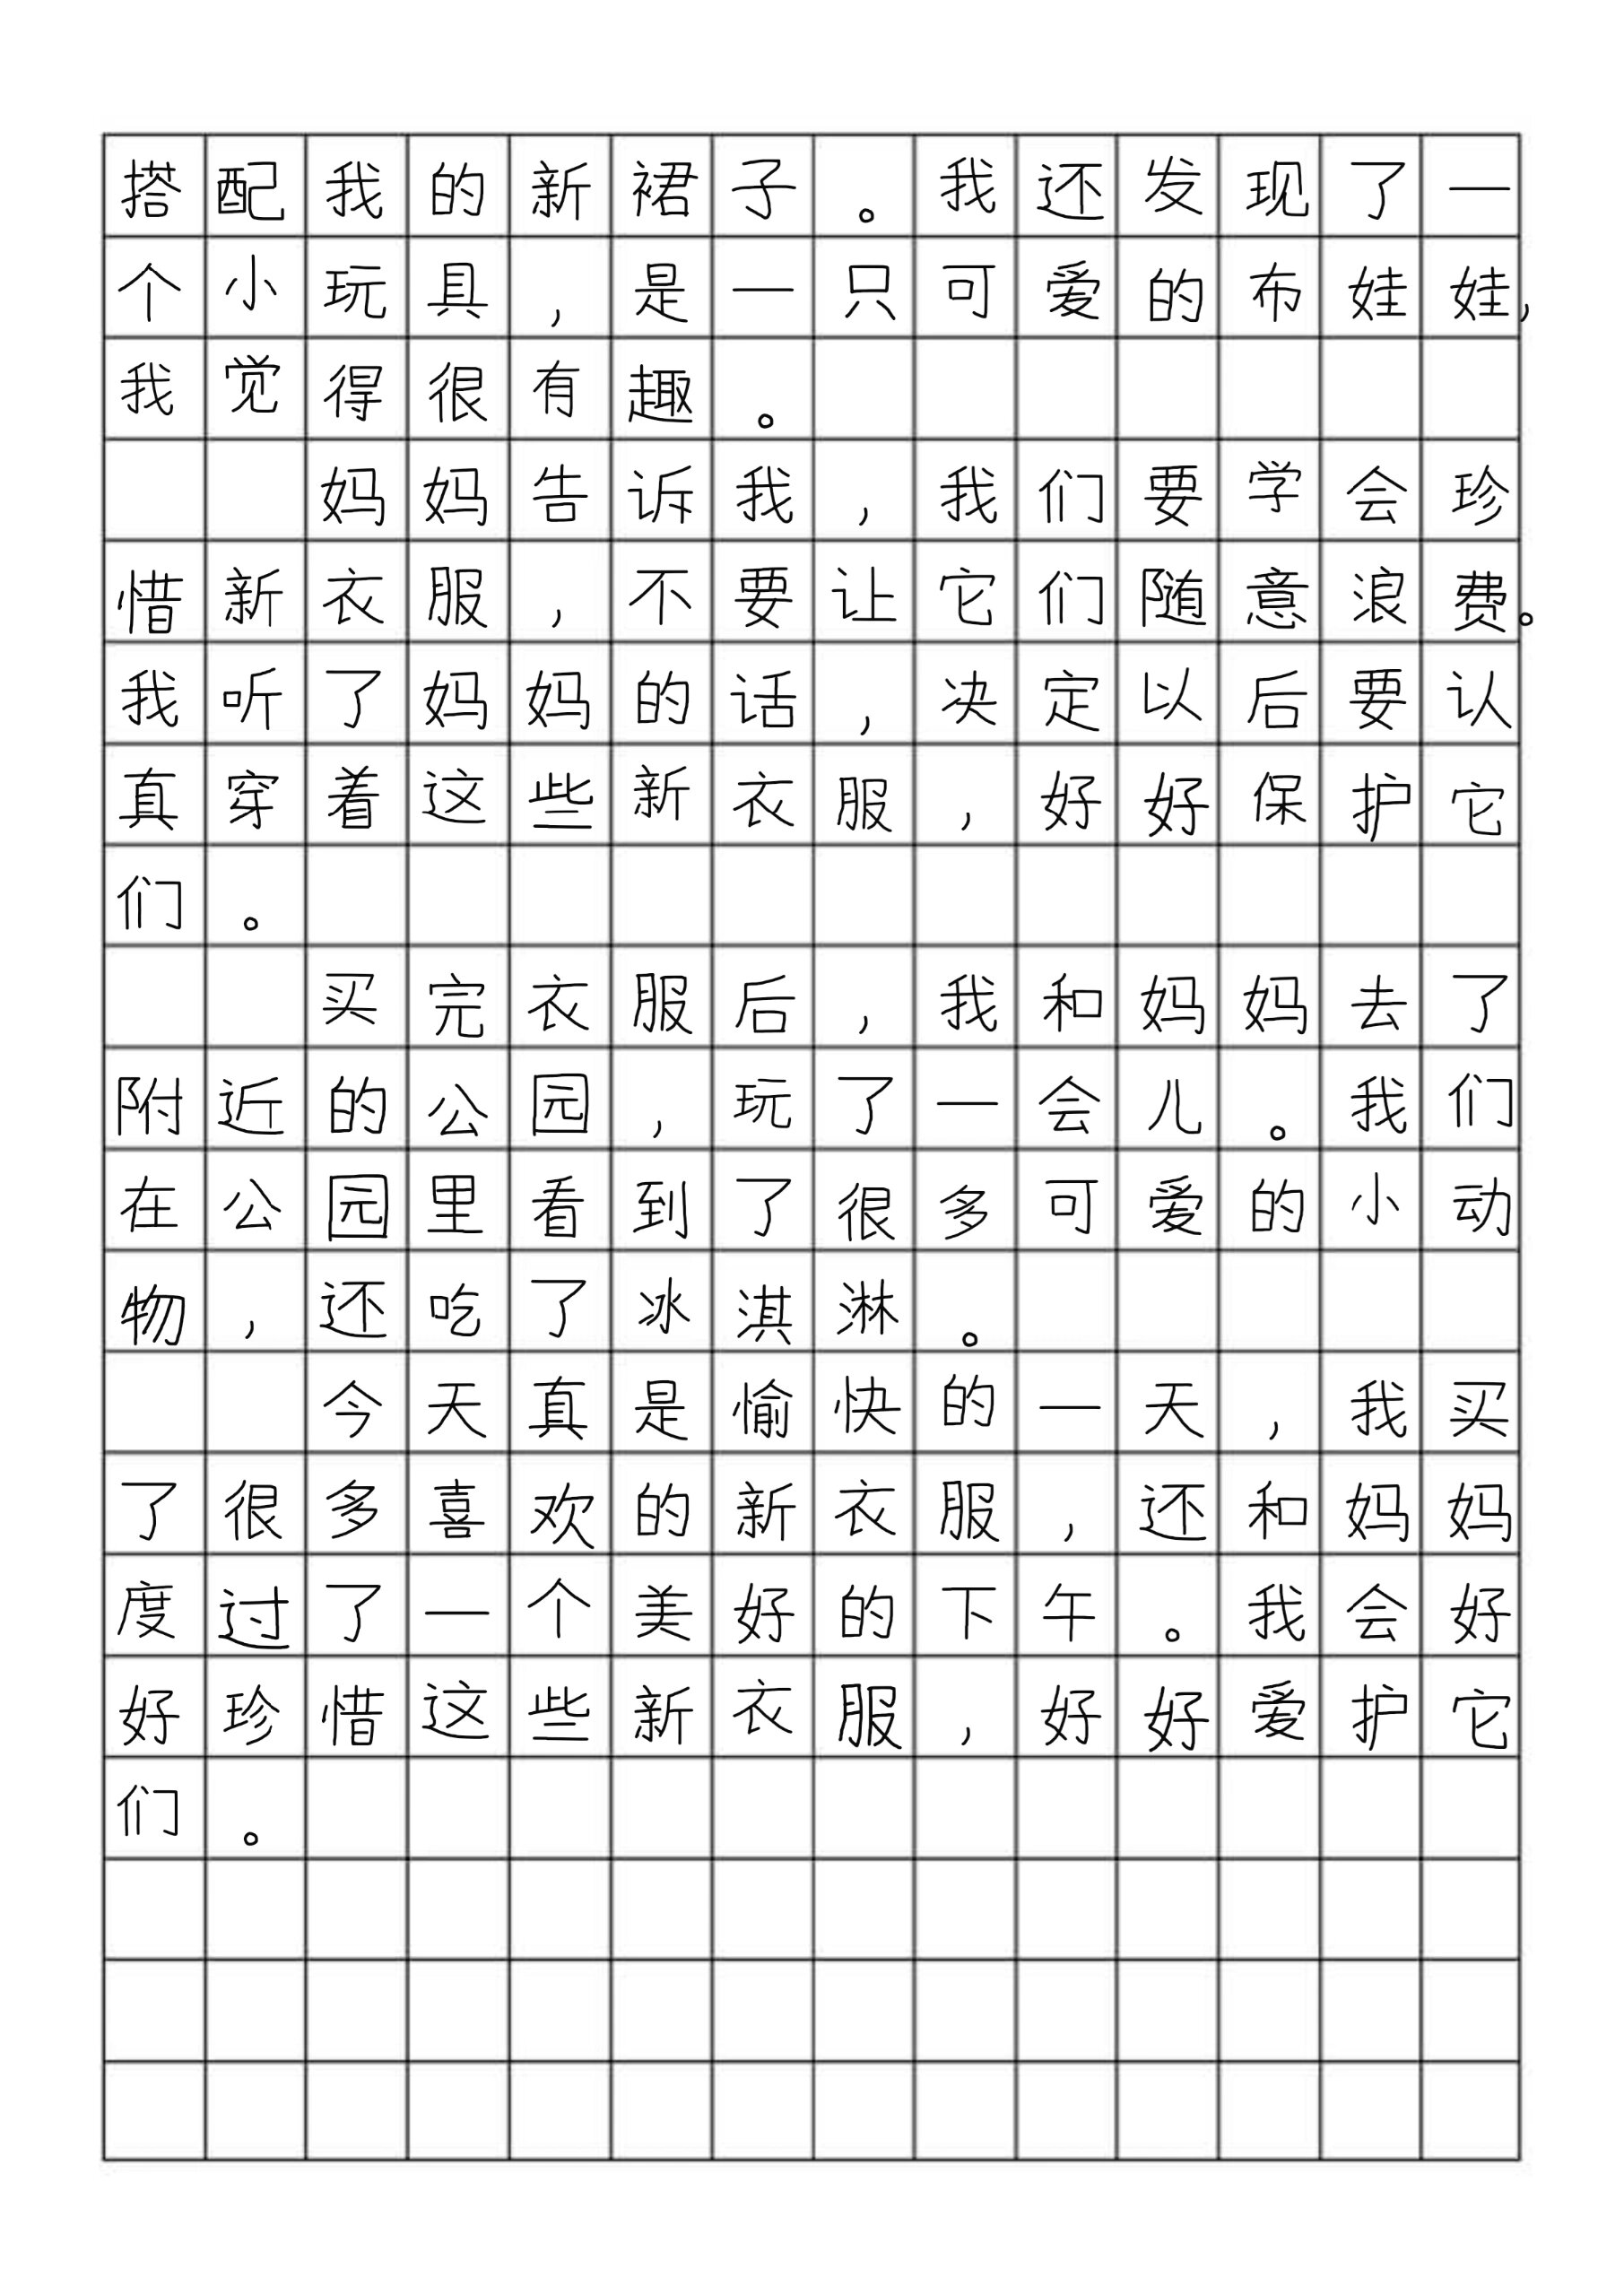 搭配我的新裙子。我还发现了一
个小玩具,是一只可爱的布娃娃,
我觉得很有趣。
妈妈告诉我,我们要学会珍
惜新衣服,不要让它们随意浪费。
我听了妈妈的话,决定以后要认
真穿着这些新衣服,好好保护它
们。
买完衣服后,我和妈妈去了
附近的公园,玩了一会儿。我们
在公园里看到了很多可爱的小动
物,还吃了冰淇淋。
今天真是愉快的一天,我买
了很多喜欢的新衣服,还和妈妈
度过了一个美好的下午。我会好
好珍惜这些新衣服,好好爱护它
们。